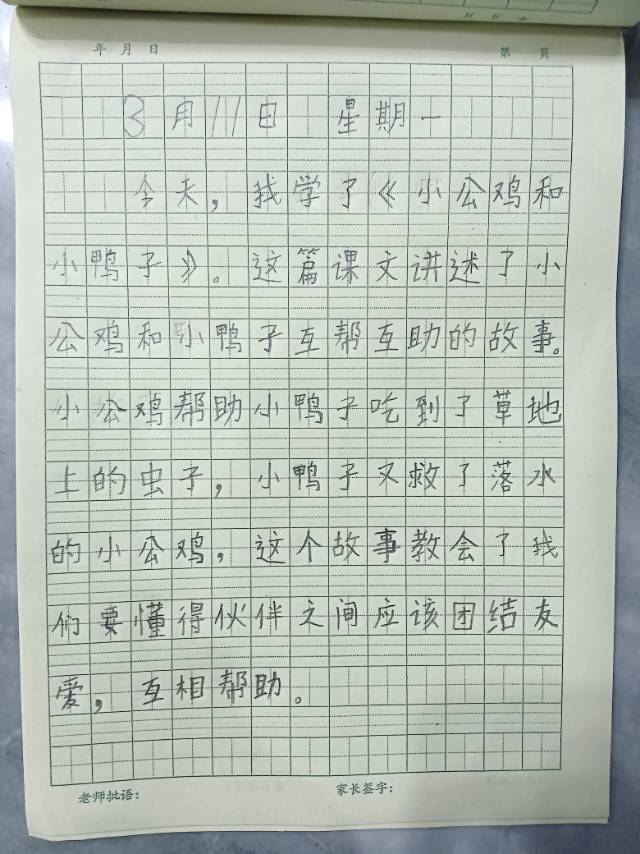 年 月 日 第 页
3月11日 星期一
今天,我学了《小公鸡和
小鸭子》。这篇课文讲述了小
公鸡和小鸭子互帮互助的故事。
小公鸡帮助小鸭子吃到了草地
上的虫子,小鸭子又救了落水
的小公鸡,这个故事教会了我
们要懂得伙伴之间应该团结友
爱,互相帮助。
老师批语: 家长签字: